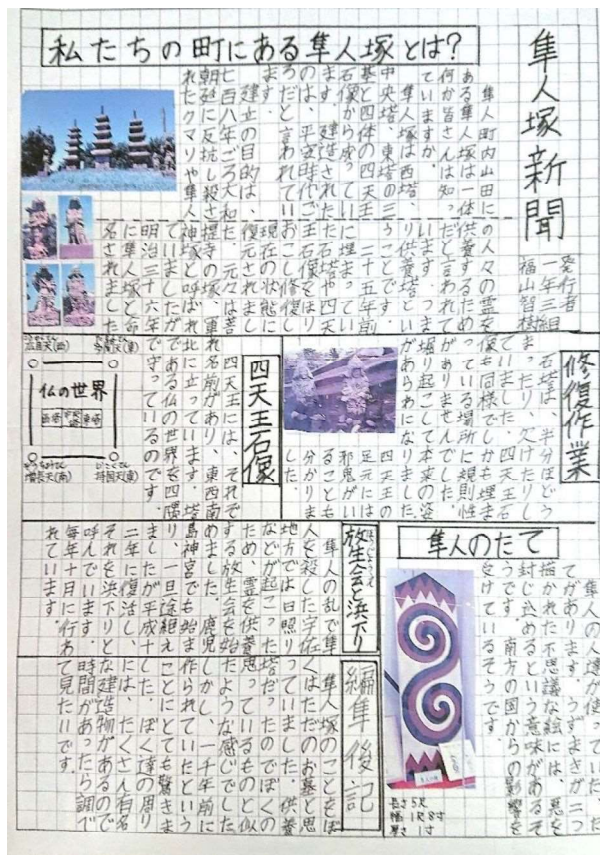 隼人塚新聞
発行者
一年三組
福山智樹
私たちの町にある隼人塚とは?
隼人町内山田に
ある隼人塚は一体
何か皆さんは知っ
ていますか。
隼人塚は西塔、
中央塔、東塔の三
基と四体の四天王
石像から成ってい
ます。建造された
のは、平安時代ご
ろだと言われてい
ます。
建立の目的は、
七百八年ごろ大和
朝廷に反抗し殺さ
れたクマソや隼人
の人々の霊を
供養するため
だと言われて
います。つま
り供養塔とい
うことです。
二十五年前
に埋まってい
た石塔や四天
王石像をほり
おこし修復し
現在の状態に
復元した。元々は菩
提寺の塚、軍
神塚と呼ばれ
ていましたが
明治三十六年
に隼人塚と命
名されました
修復作業
石塔は、半分ほどう
まったり、欠けたりし
ていました。四天王石
像も同様でしかも埋ま
っている場所に規則性
がありませんでした。
堀り起こして本来の姿
があらわになりました。
四天王の
足元には
邪鬼がい
ることも
分かりま
した。
四天王石像
四天王には、それぞ
れ名前があり、東西南
北に立っています。塔
である仏の世界を四隅
で守っているのです。
仏の世界
西塔 中央塔 東塔
増長天(南)
隼人のたて
隼人の人達が使っていた、た
てがあります。うずまきが二つ
描かれた不思議な絵には、悪を
封じ込めるという意味があるそ
うです。南方の国からの影響を
受けているそうです。
長さ5尺
幅1尺8寸
厚さ1寸
放生会と浜下り
ほうじょうえ
隼人の乱で隼
人を殺した宇佐
地方では日照り
などが起こった
ため、霊を供養
する放生会を始
めました。鹿児
島神宮でも始ま
り、一旦途絶え
ましたが平成十
二年に復活し、
それを浜下りと
呼んでいます。
毎年十月に行わ
れています。
編隼後記
隼人塚のことをぼ
くはただのお墓と思
っていました。供養
塔だったのでぼくの
思っているものと似
たような感じでした。
しかし、一千年前に
作られていたという
ことにとても驚きま
した。ぼく達の周り
には、たくさん有名
な建造物があるので
時間があったら調べ
て見たいです。